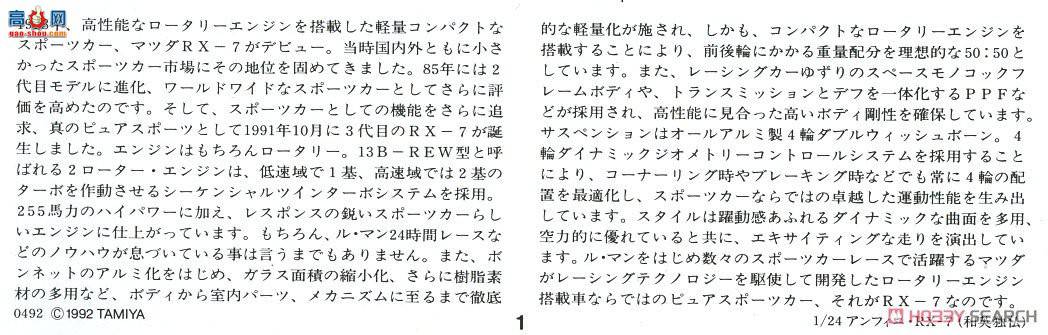 年、高性能なロータリーエンジンを搭載した軽量コンパクトな
スポーツカー、マツダRX－7がデビュー。当時国内外ともに小さ
かったスポーツカー市場にその地位を固めてきました。85年には2
代目モデルに進化、ワールドワイドなスポーツカーとしてさらに評
価を高めたのです。そして、スポーツカーとしての機能をさらに追
求、真のピュアスポーツとして1991年10月に3代目のRX－7が誕
生しました。エンジンはもちろんロータリー。13B－REW型と呼
ばれる2ローター・エンジンは、低速域で1基、高速域では2基の
ターボを作動させるシーケンシャルツインターボシステムを採用。
255馬力のハイパワーに加え、レスポンスの鋭いスポーツカーらし
いエンジンに仕上がっています。もちろん、ル・マン24時間レースな
どのノウハウが息づいている事は言うまでもありません。また、ボ
ンネットのアルミ化をはじめ、ガラス面積の縮小化、さらに樹脂素
材の多用など、ボディから室内パーツ、メカニズムに至るまで徹底
0492 ©1992 TAMIYA
的な軽量化が施され、しかも、コンパクトなロータリーエンジンを
搭載することにより、前後輪にかかる重量配分を理想的な50：50と
しています。また、レーシングカーゆずりのスペースモノコックフ
レームボディや、トランスミッションとデフを一体化するPPFな
どが採用され、高性能に見合った高いボディ剛性を確保しています。
サスペンションはオールアルミ製4輪ダブルウィッシュボーン。4
輪ダイナミックジオメトリーコントロールシステムを採用すること
により、コーナーリング時やブレーキング時などでも常に4輪の配
置を最適化し、スポーツカーならではの卓越した運動性能を生み出
しています。スタイルは躍動感あふれるダイナミックな曲面を多用、
空力的に優れていると共に、エキサイティングな走りを演出してい
ます。ル・マンをはじめ数々のスポーツカーレースで活躍するマツダ
がレーシングテクノロジーを駆使して開発したロータリーエンジン
搭載車ならではのピュアスポーツカー、それがRX－7なのです。
1
1/24 アンフィニ RX-7 (和英独仏)
HOBBY SEARCH